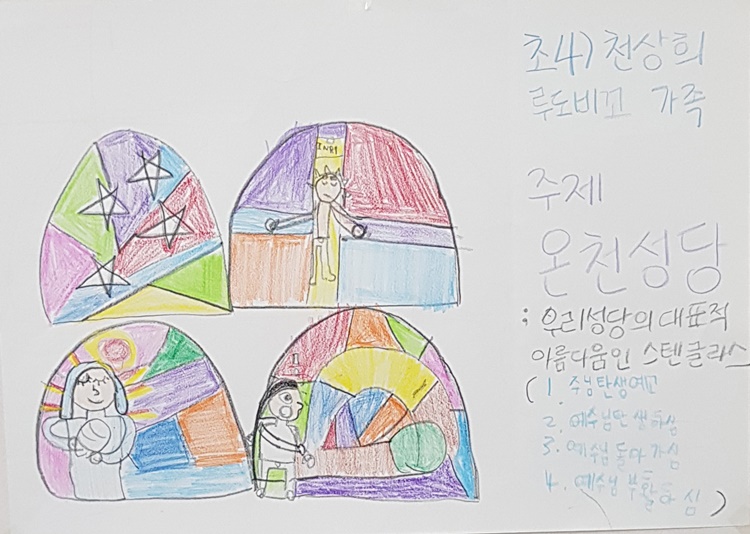 INRI
초4) 천상희
루도비꼬 가족
주제
온천성당
; 우리성당의 대표적
아름다움인 스텐글라스
(1. 주님탄생예고
2. 예수님 탄생하심
3. 예수님 돌아가심
4. 예수님 부활하심)